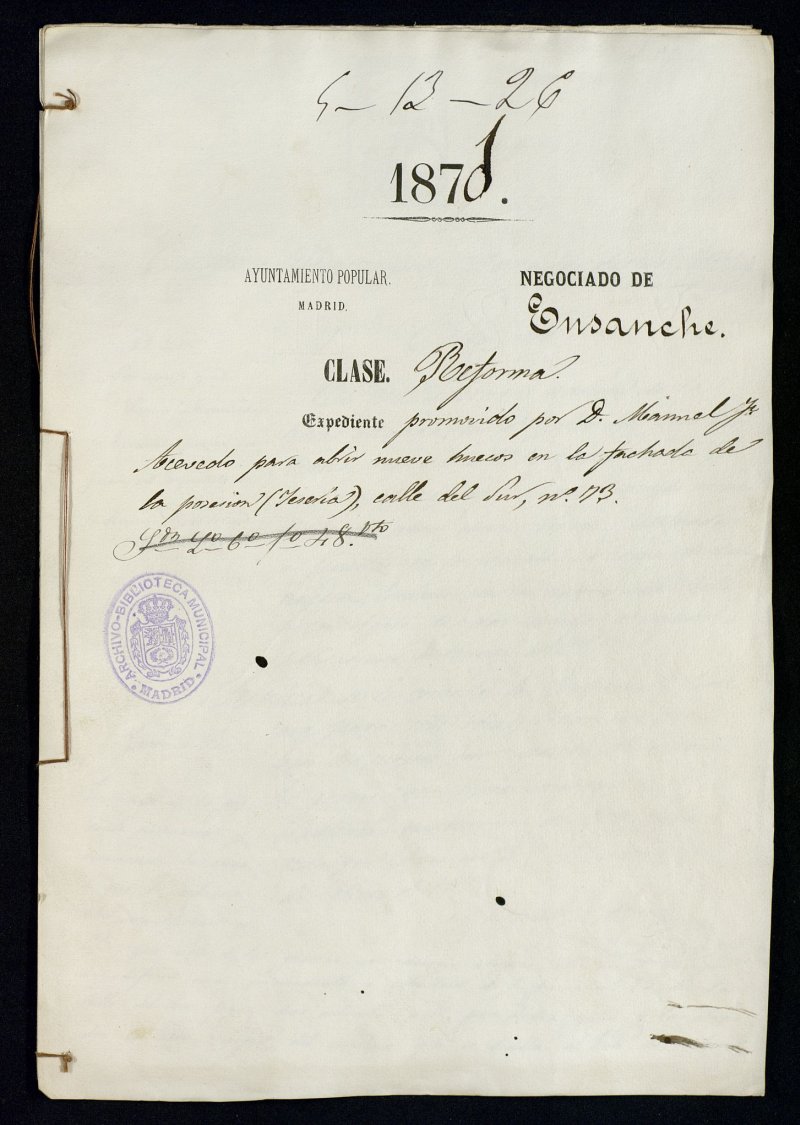 5-13-26
1871.
AYUNTAMIENTO POPULAR.
MADRID.
NEGOCIADO DE
Ensanche.
CLASE. Reforma.
Expediente promovido por D. Manuel
Acevedo para abrir nueve huecos en la fachada de
la posesion (Yesería), calle del Sur, nº. 73.
ARCHIVO-BIBLIOTECA MUNICIPAL
MADRID